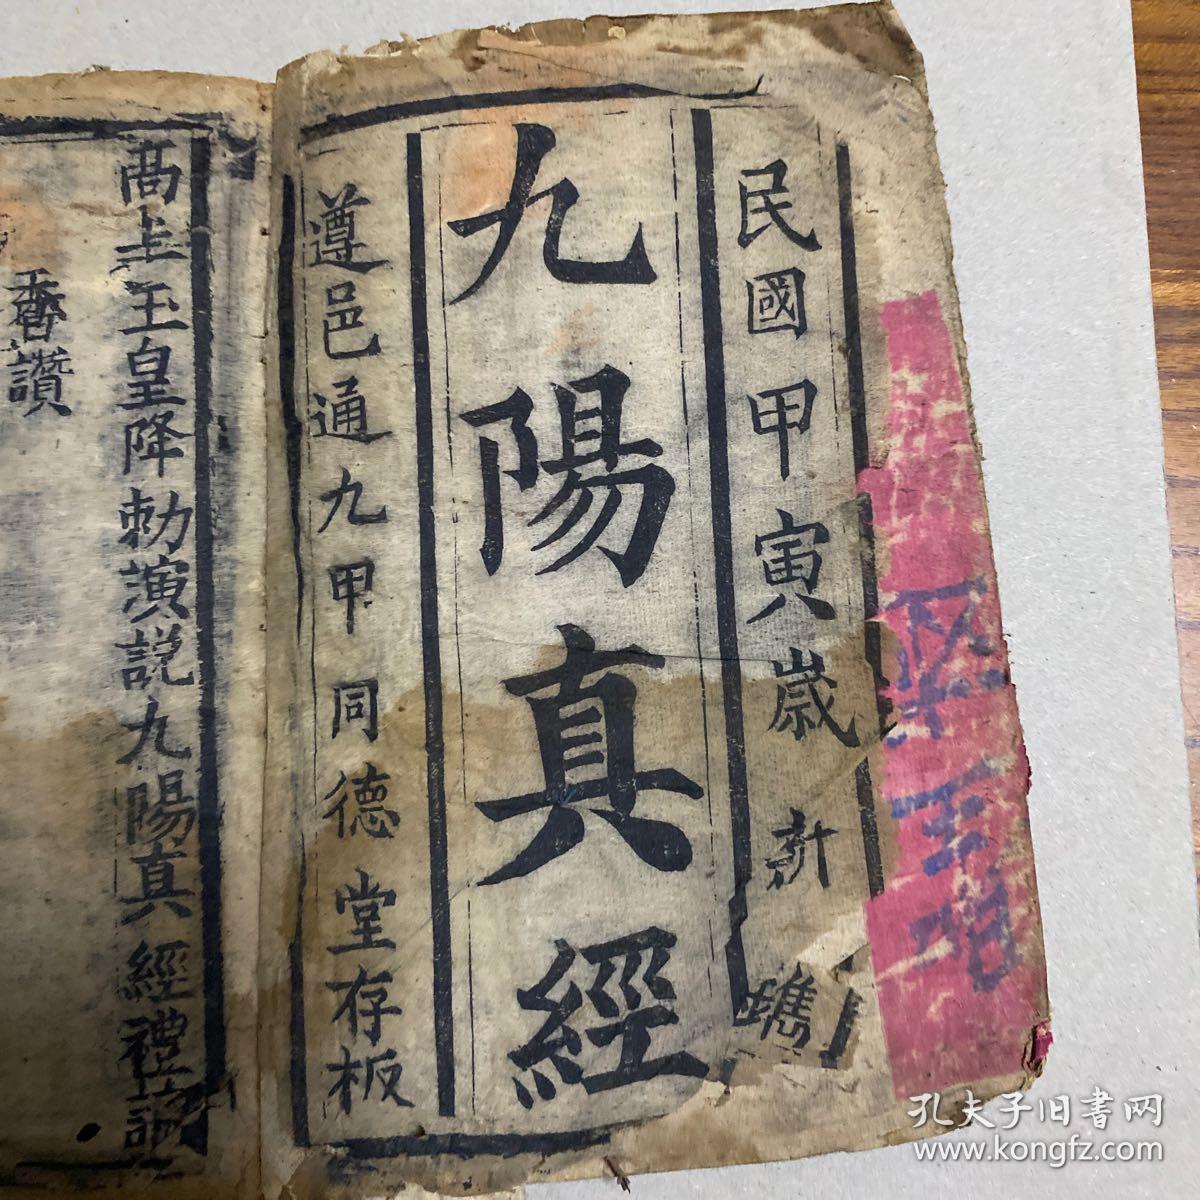 民國甲寅歲新鐫
九陽真經
遵邑通九甲同德堂存板
高上玉皇降勅演説九陽真經禮
香讚
孔夫子旧書网
www.kongfz.com